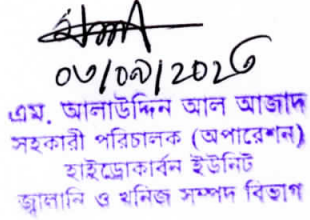 ০৩/০৯/202৫
এম. আলাউদ্দিন আল আজাদ
সহকারী পরিচালক (অপারেশন)
হাইড্রোকার্বন ইউনিট
জ্বালানি ও খনিজ সম্পদ বিভাগ